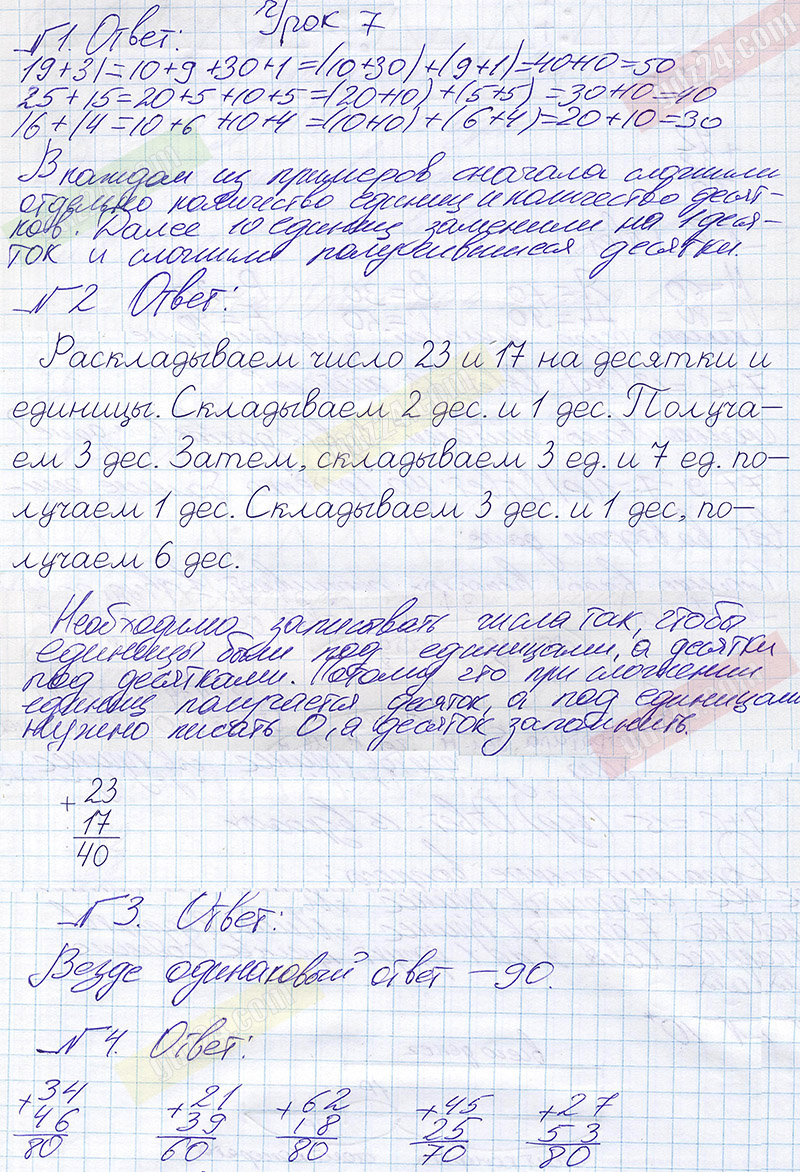 Урок 7
№1. Ответ:
19+31=10+9+30+1=(10+30)+(9+1)=40+10=50
25+15=20+5+10+5=(20+10)+(5+5)=30+10=40
16+14=10+6+10+4=(10+10)+(6+4)=20+10=30
В каждом из примеров сначала сложили
отдельно количество единиц и количество десят-
ков. Далее 10 единиц заменили на 1 деся-
ток и сложили получившиеся десятки.
№2 Ответ:
Раскладываем число 23 и 17 на десятки и
единицы. Складываем 2 дес. и 1 дес. Получа-
ем 3 дес. Затем, складываем 3 ед. и 7 ед. по-
лучаем 1 дес. Складываем 3 дес. и 1 дес, по-
лучаем 6 дес.
Необходимо записывать числа так, чтобы
единицы были под единицами, а десятки
под десятками. Потому что при сложении
единиц получается десяток, а под единицами
нужно писать 0, а десяток запомнить.
+ 23
17
40
№3. Ответ:
Везде одинаковый ответ – 90.
№4. Ответ:
+ 34 + 21 + 62 + 45 + 27
46 39 18 25 53
80 60 80 70 80
gdz24.com